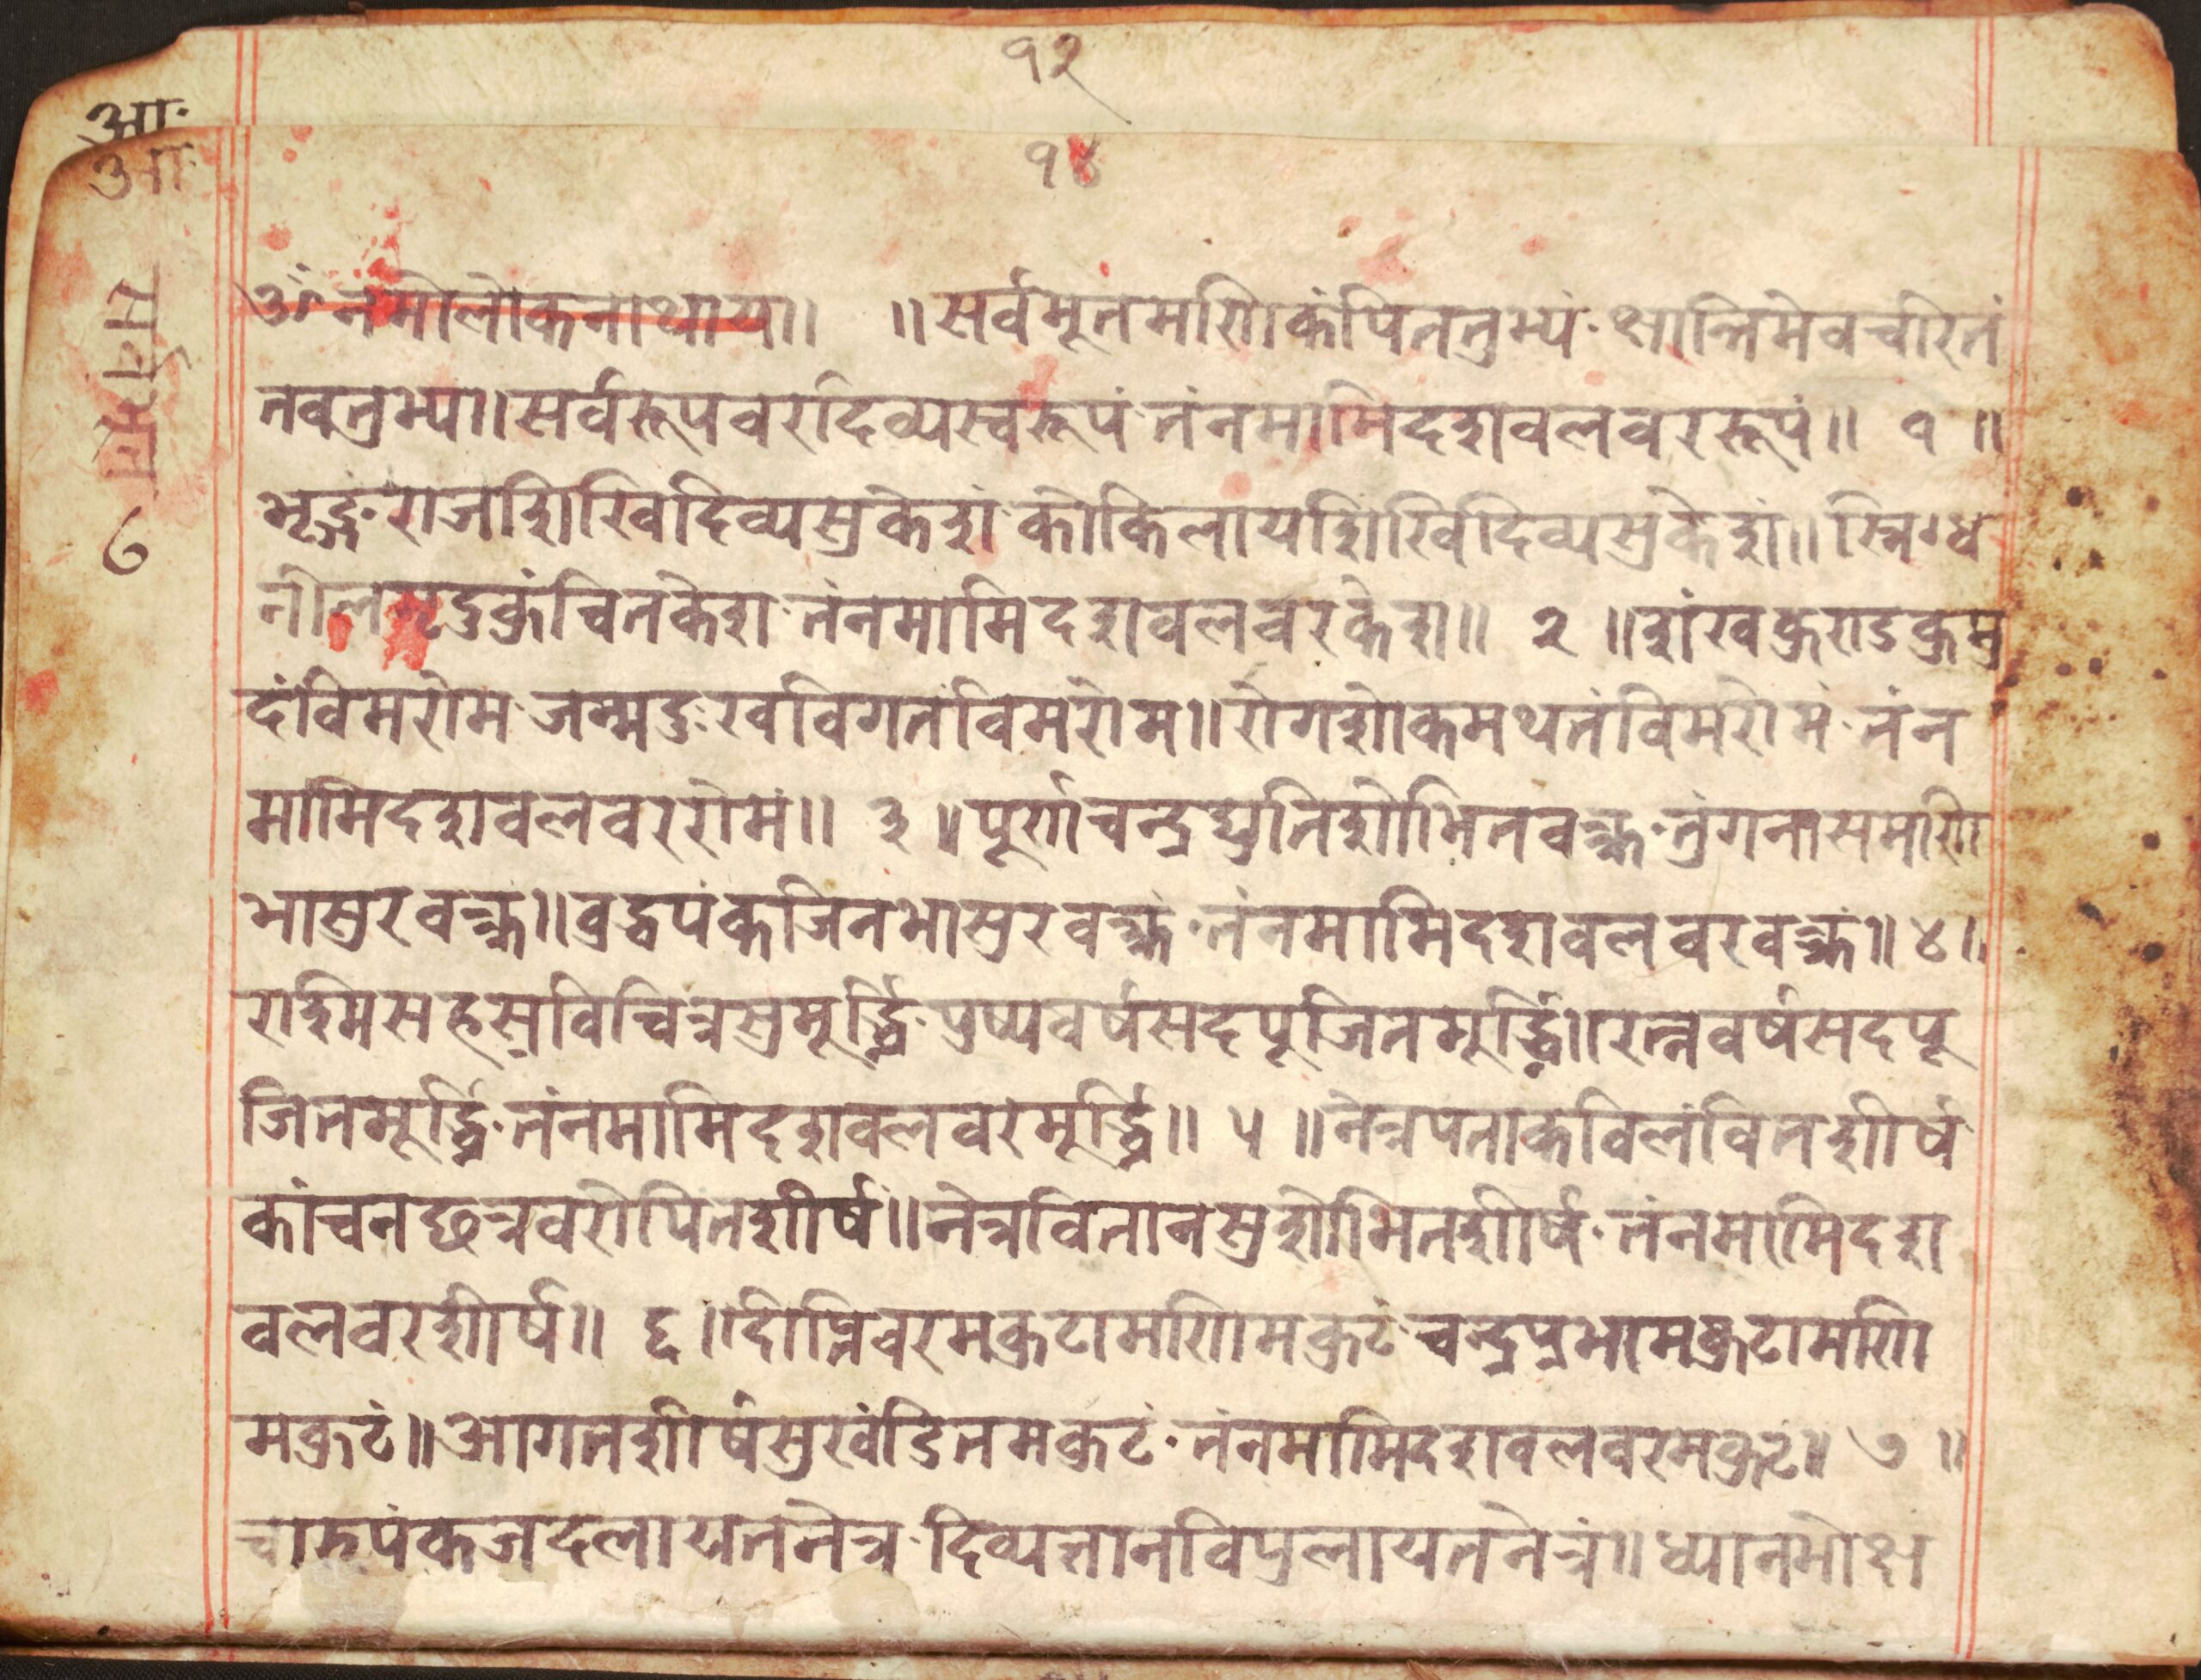 १२
आः
१४
आः
सर्वभूत ७
ॐ नमो लोकनाथाय॥ ॥सर्वभूतमणिकंपिततुभ्यं·क्षान्तिमेवचरितं
तवतुभ्य॥सर्वरूपवरदिव्यस्वरूपं·तंनमामिदशवलवररूपं॥ १ ॥
भृङ्गराजशिखिदिव्यसुकेशं·कोकिलायशिखिदिव्यसुकेशं॥स्निग्ध
नीलमृदुकुंचितकेश·तंनमामिदशवलवरकेश॥ २ ॥शंखकुराडकुमु
दंविमरोम·जन्मदुःखविगतंविमरोम॥रोगशोकमथनंविमरोमं·तंन
मामिदशवलवररोमं॥ ३ ॥पूर्णचन्द्रद्युतिशोभितवक्त्र·तुंगनासमणि
भासुरवक्त्र॥बुद्धपंकजनिभासुरवक्त्रं·तंनमामिदशवलवरवक्त्रं॥४॥
रश्मिसहस्रविचित्रसुमूर्द्ध्नि·पुष्पवर्षसदपूजितमूर्द्ध्निं॥रत्नवर्षसदपू
जितमूर्द्ध्नि·तंनमामिदशवलवरमूर्द्ध्नि॥ ५ ॥नेत्रपताकविलंवितशीर्ष
कांचनछत्रवरोपितशीर्ष॥नेत्रवितानसुशोभितशीर्ष·तंनमामिदश
वलवरशीर्ष॥ ६ ॥दीप्तिवरमकुटामणिमकुटं·चन्द्रप्रभामकुटामणि
मकुटं॥आगतशीर्षसुखंडितमकुटं·तंनमामिदशवलवरमकुटं॥ ७ ॥
चारुपंकजदलायतनेत्र·दिव्यज्ञानविपुलायतनेत्रं॥ध्यानमोक्ष